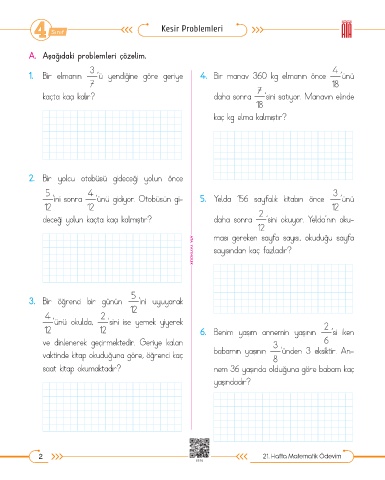 4. Sınıf
Kesir Problemleri
ATA
A. Aşağıdaki problemleri çözelim.
1. Bir elmanın 3/7'ü yendiğine göre geriye
kaçta kaçı kalır?
2. Bir yolcu otobüsü gideceği yolun önce
5/12'ini sonra 4/12'ünü gidiyor. Otobüsün gi-
deceği yolun kaçta kaçı kalmıştır?
3. Bir öğrenci bir günün 5/12'ini uyuyarak
4/12'ünü okulda, 2/12'sini ise yemek yiyerek
ve dinlenerek geçirmektedir. Geriye kalan
vaktinde kitap okuduğuna göre, öğrenci kaç
saat kitap okumaktadır?
4. Bir manav 360 kg elmanın önce 4/18'ünü
daha sonra 7/18'sini satıyor. Manavın elinde
kaç kg elma kalmıştır?
5. Yelda 156 sayfalık kitabın önce 3/12'ünü
daha sonra 2/12'sini okuyor. Yelda'nın oku-
ması gereken sayfa sayısı, okuduğu sayfa
sayısından kaç fazladır?
6. Benim yaşım annemin yaşının 2/6'si iken
babamın yaşının 3/8'ünden 3 eksiktir. An-
nem 36 yaşında olduğuna göre babam kaç
yaşındadır?
2
21. Hafta Matematik Ödevim